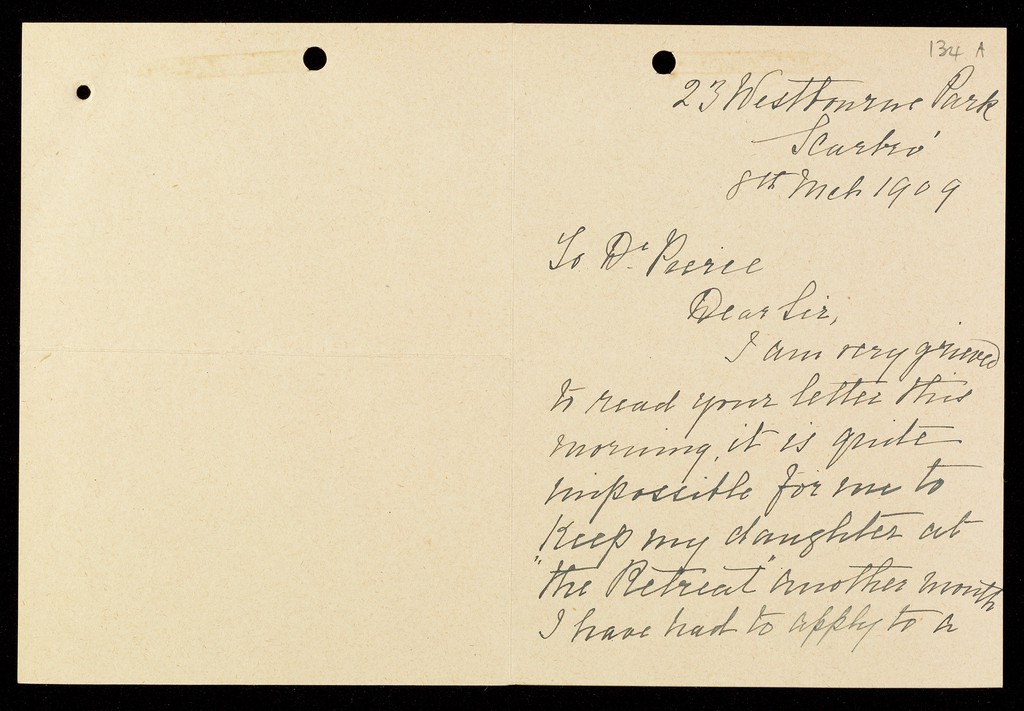 134 A
23 Westbourne Park
Scarbro'
8th Mch 1909
To Dr. Pierce
Dear Sir,
I am very grieved
to read your letter this
morning, it is quite
impossible for me to
keep my daughter at
"the Retreat" another month
I have had to apply to a